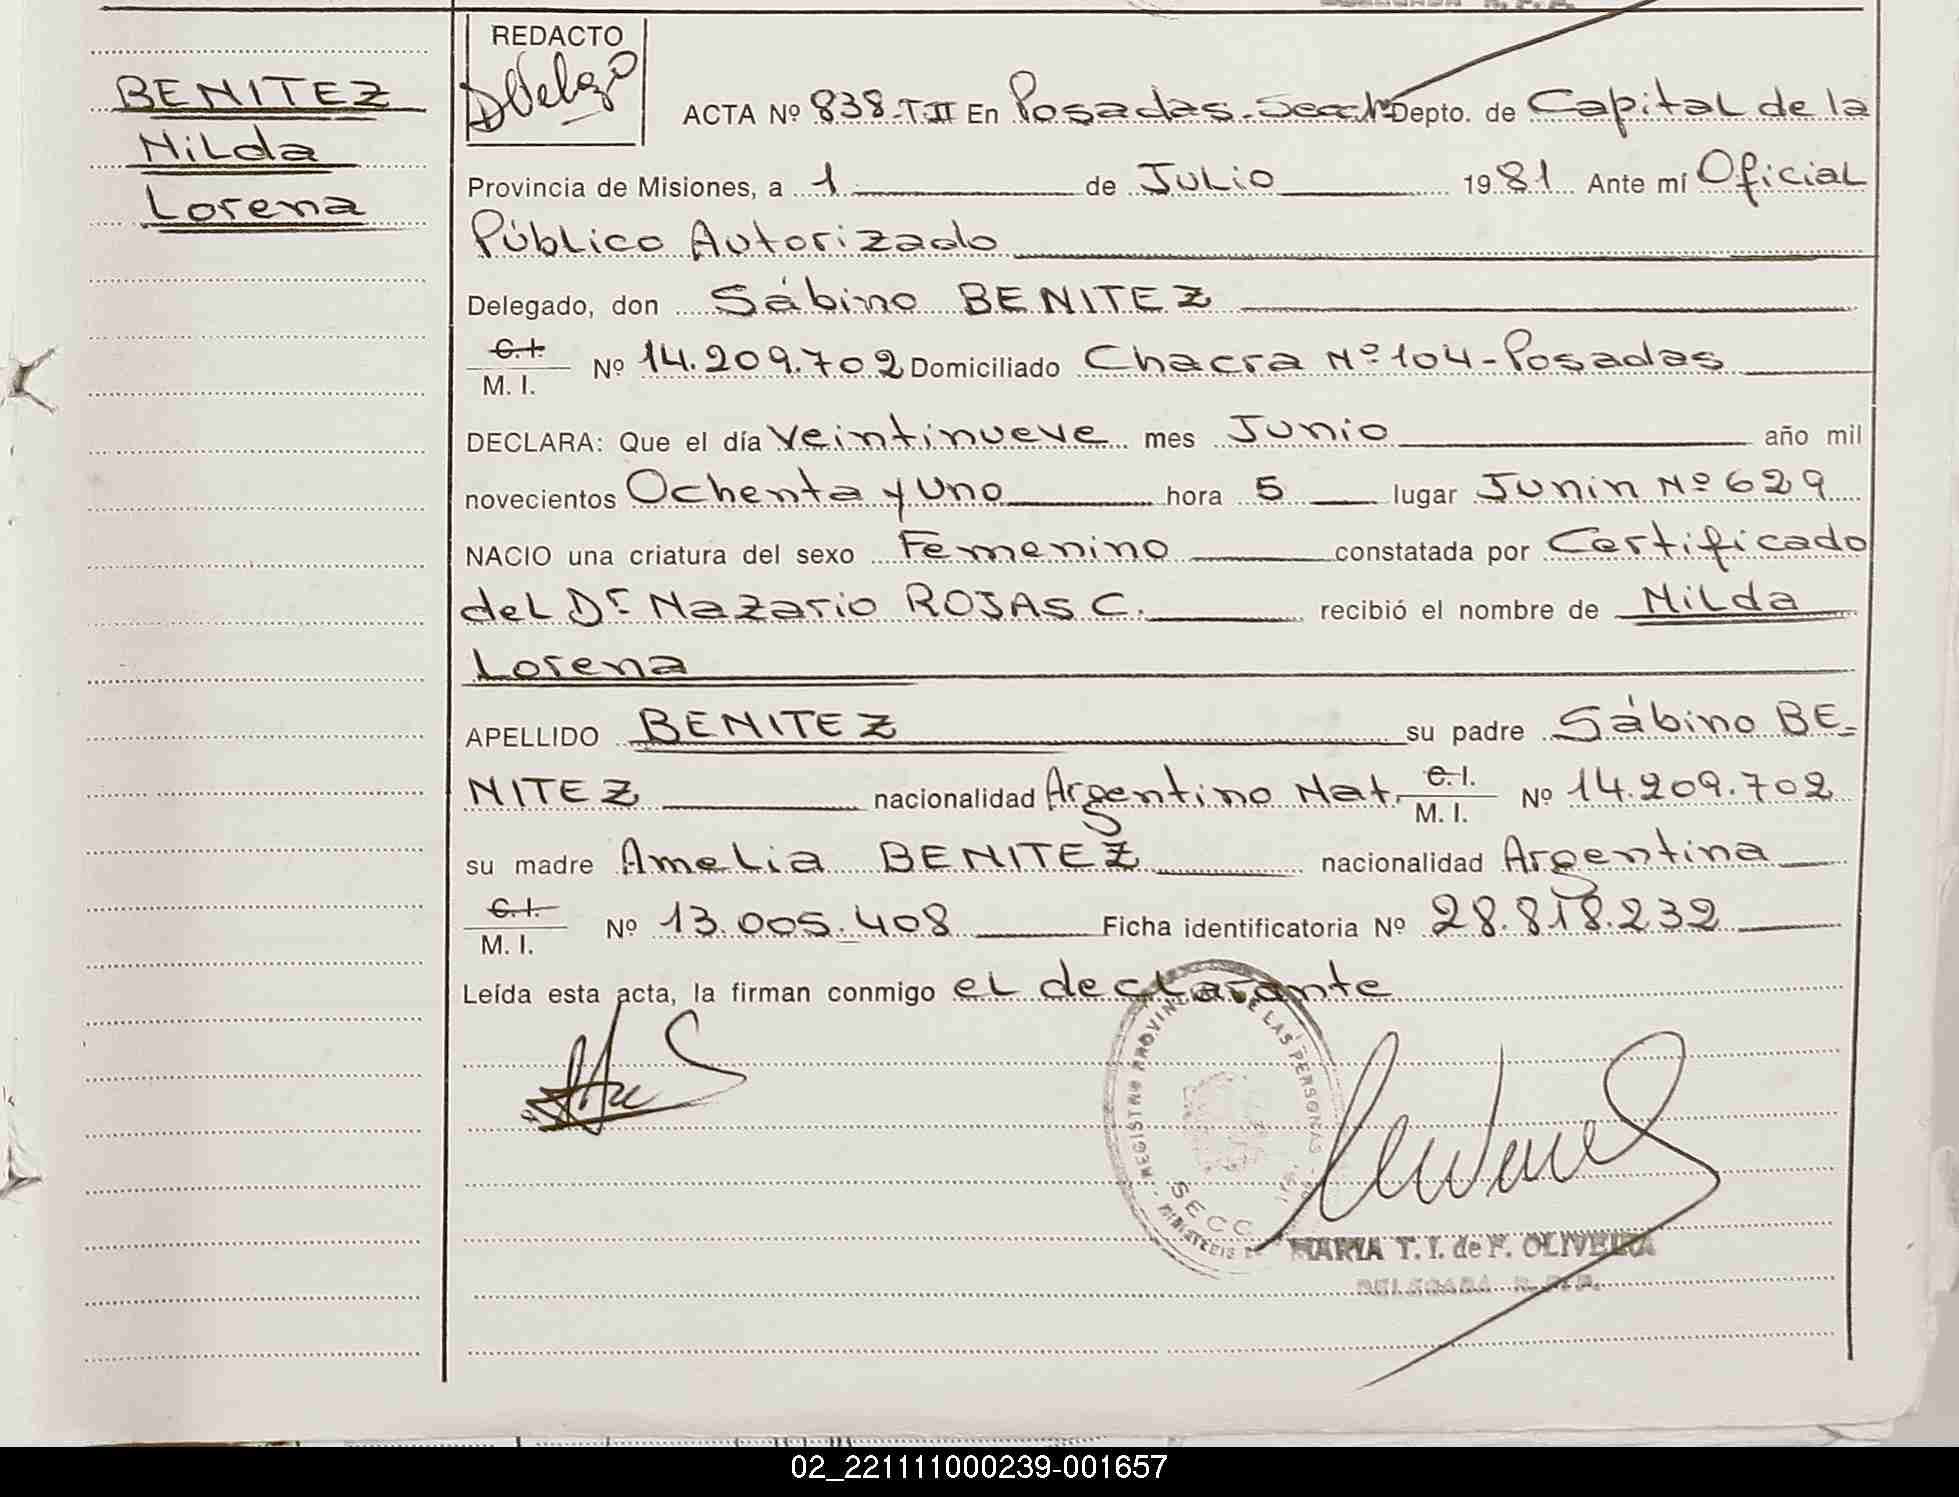 BENITEZ
Nilda
Lorena
REDACTO
ACTA Nº 838-T.II En Posadas-Secc 1ª Depto. de Capital de la
Provincia de Misiones, a 1 de Julio 1981 Ante mí Oficial
Público Autorizado
Delegado, don Sábino BENITEZ
C.I.
M. I. Nº 14.209.702 Domiciliado Chacra Nº 104-Posadas
DECLARA: Que el día Veintinueve mes Junio año mil
novecientos Ochenta y Uno hora 5 lugar Junin Nº 629
NACIO una criatura del sexo Femenino constatada por Certificado
del Dr Nazario ROJAS C. recibió el nombre de Nilda
Lorena
APELLIDO BENITEZ su padre Sábino BE-
NITEZ nacionalidad Argentino Nat. C.I.
M. I. Nº 14.209.702
su madre Amelia BENITEZ nacionalidad Argentina
C.I.
M. I. Nº 13.005.408 Ficha identificatoria Nº 28.818.232
Leída esta acta, la firman conmigo el declarante
REGISTRO PROVINCIAL DE LAS PERSONAS
SECC.
MINISTERIO
MARIA T. I. de F. OLIVEIRA
DELEGADA R. P. P.
02_221111000239-001657